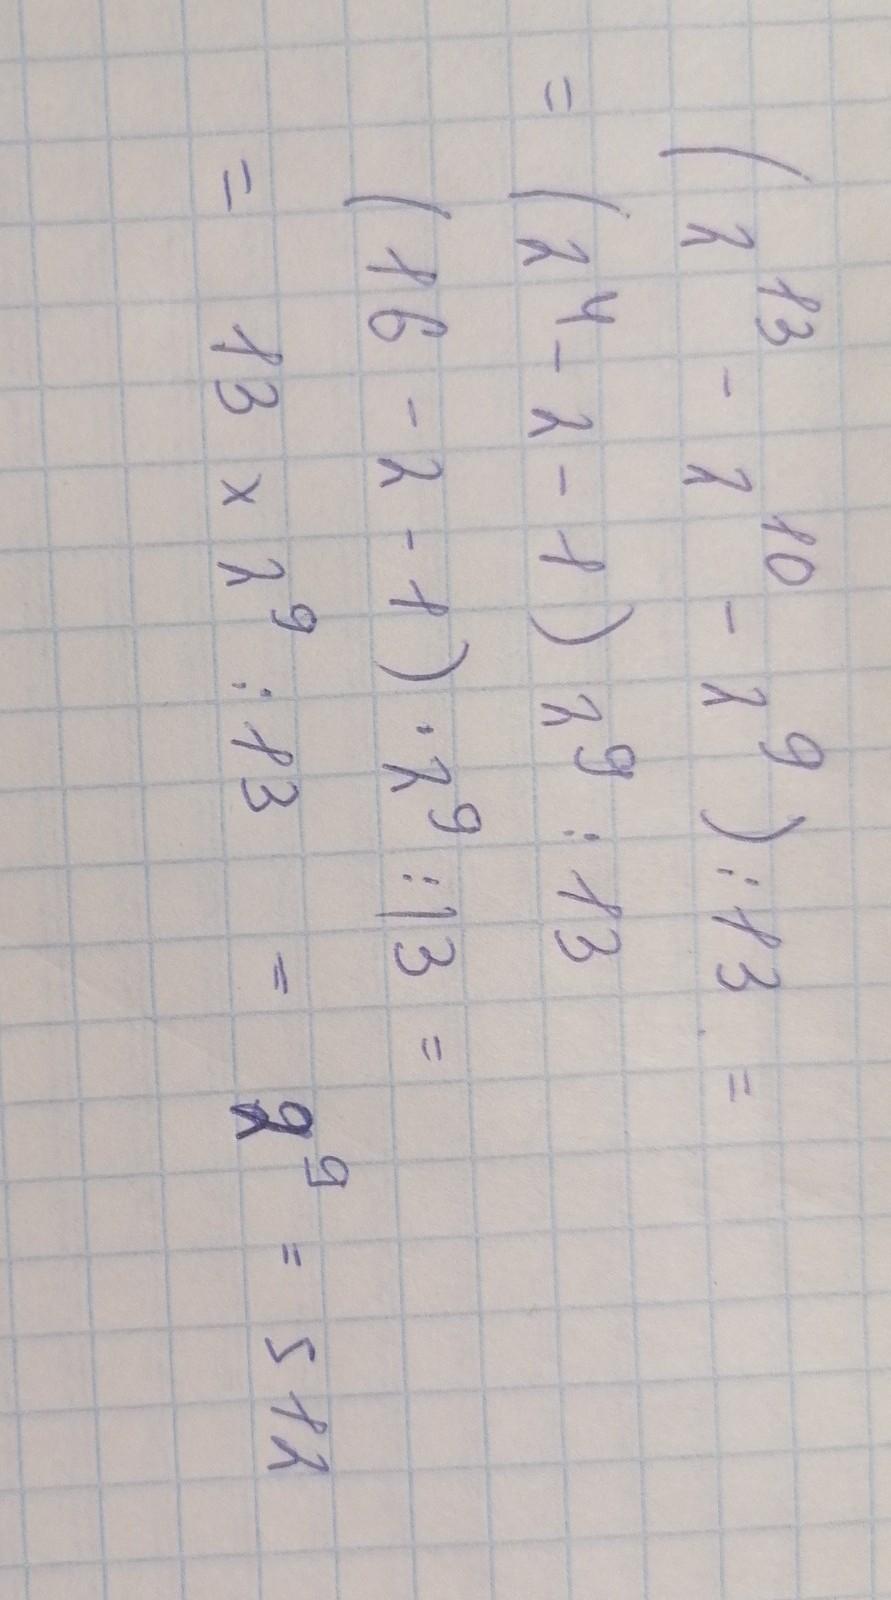 (2¹³ - 2¹⁰ - 2⁹) : 13 =
= (2⁴ - 2 - 1) 2⁹ : 13
(16 - 2 - 1) · 2⁹ : 13 =
= 13 x 2⁹ : 13 = 2⁹ = 512